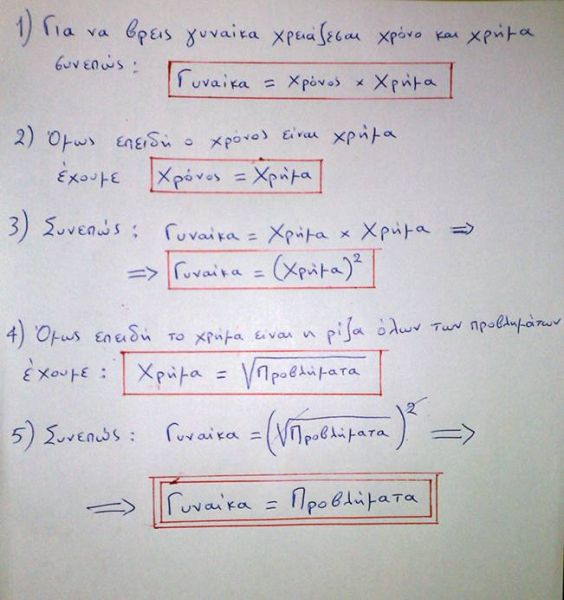 1) Για να βρεις γυναίκα χρειάζεσαι χρόνο και χρήμα
συνεπώς: Γυναίκα = Χρόνος × Χρήμα
2) Όμως επειδή ο χρόνος είναι χρήμα
έχουμε Χρόνος = Χρήμα
3) Συνεπώς: Γυναίκα = Χρήμα × Χρήμα ⇒
⇒ Γυναίκα = (Χρήμα)²
4) Όμως επειδή το χρήμα είναι η ρίζα όλων των προβλημάτων
έχουμε: Χρήμα = √Προβλήματα
5) Συνεπώς: Γυναίκα = (√Προβλήματα)² ⇒
⇒ Γυναίκα = Προβλήματα